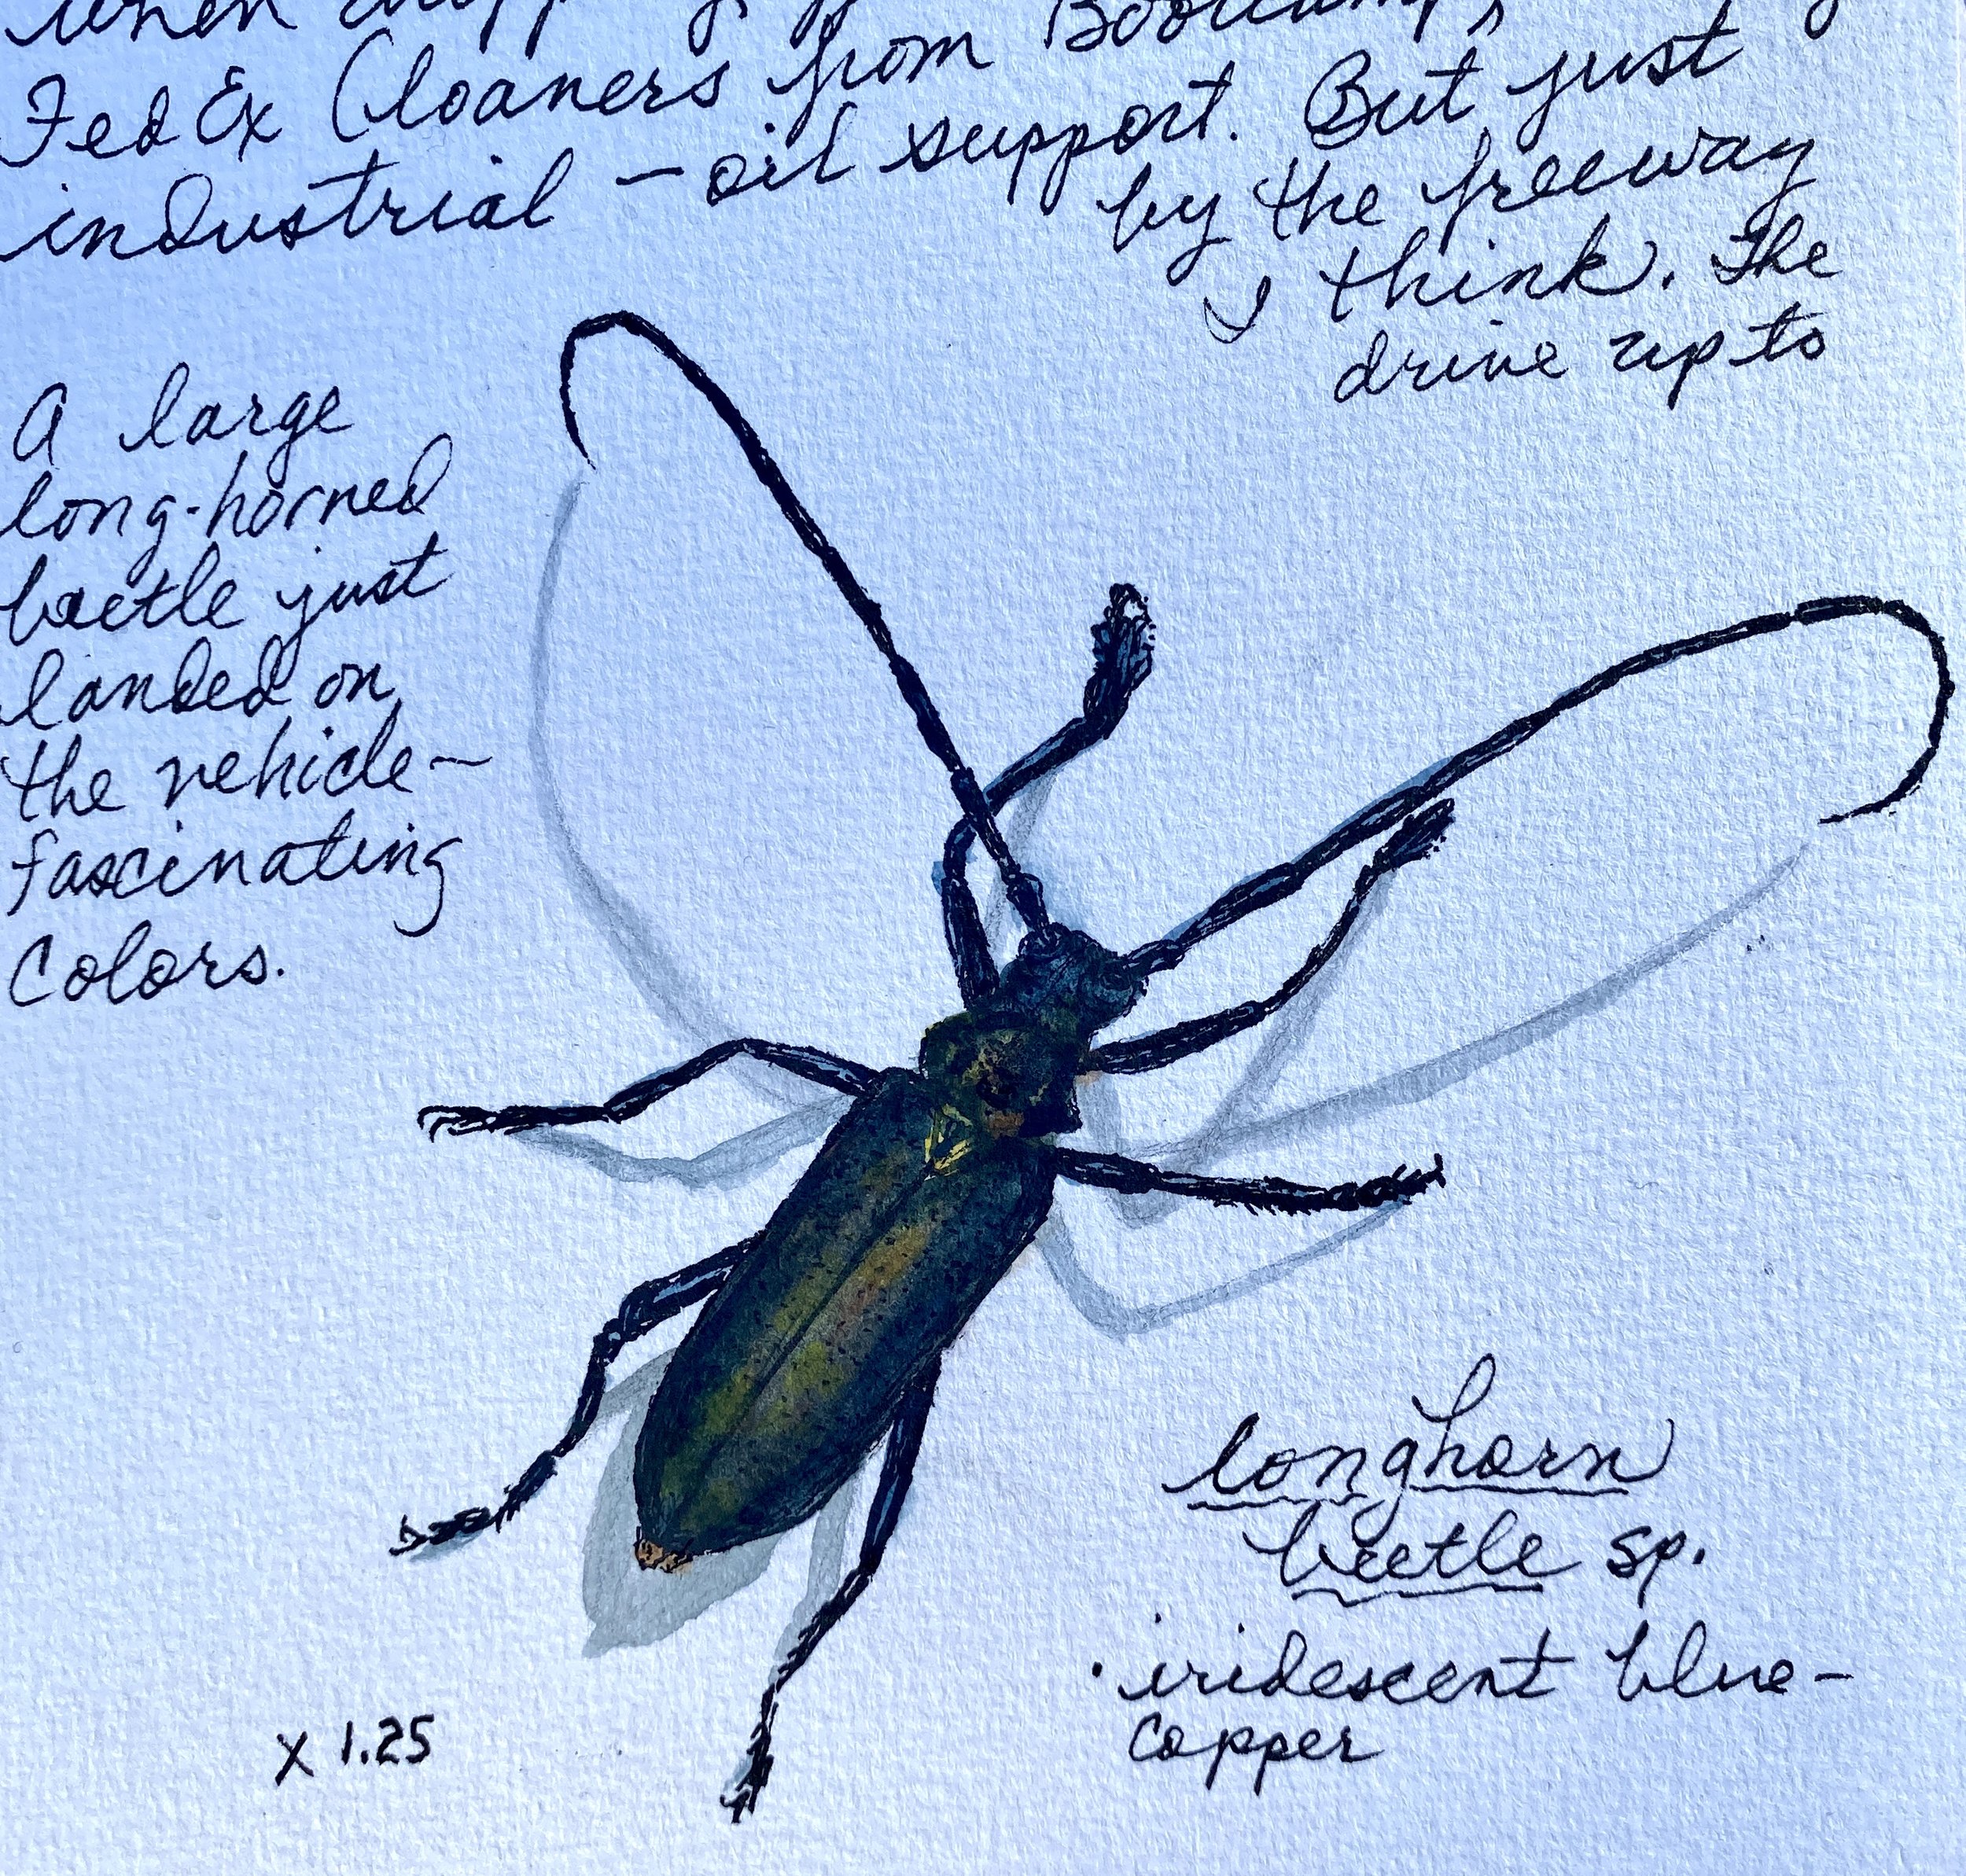 when
FedEx (loaners from Bootcamp,
industrial - oil support. But just
by the freeway
I think. The
drive up to
A large
long-horned
beetle just
landed on
the vehicle -
fascinating
colors.
longhorn
beetle sp.
· iridescent blue-
copper
x 1.25